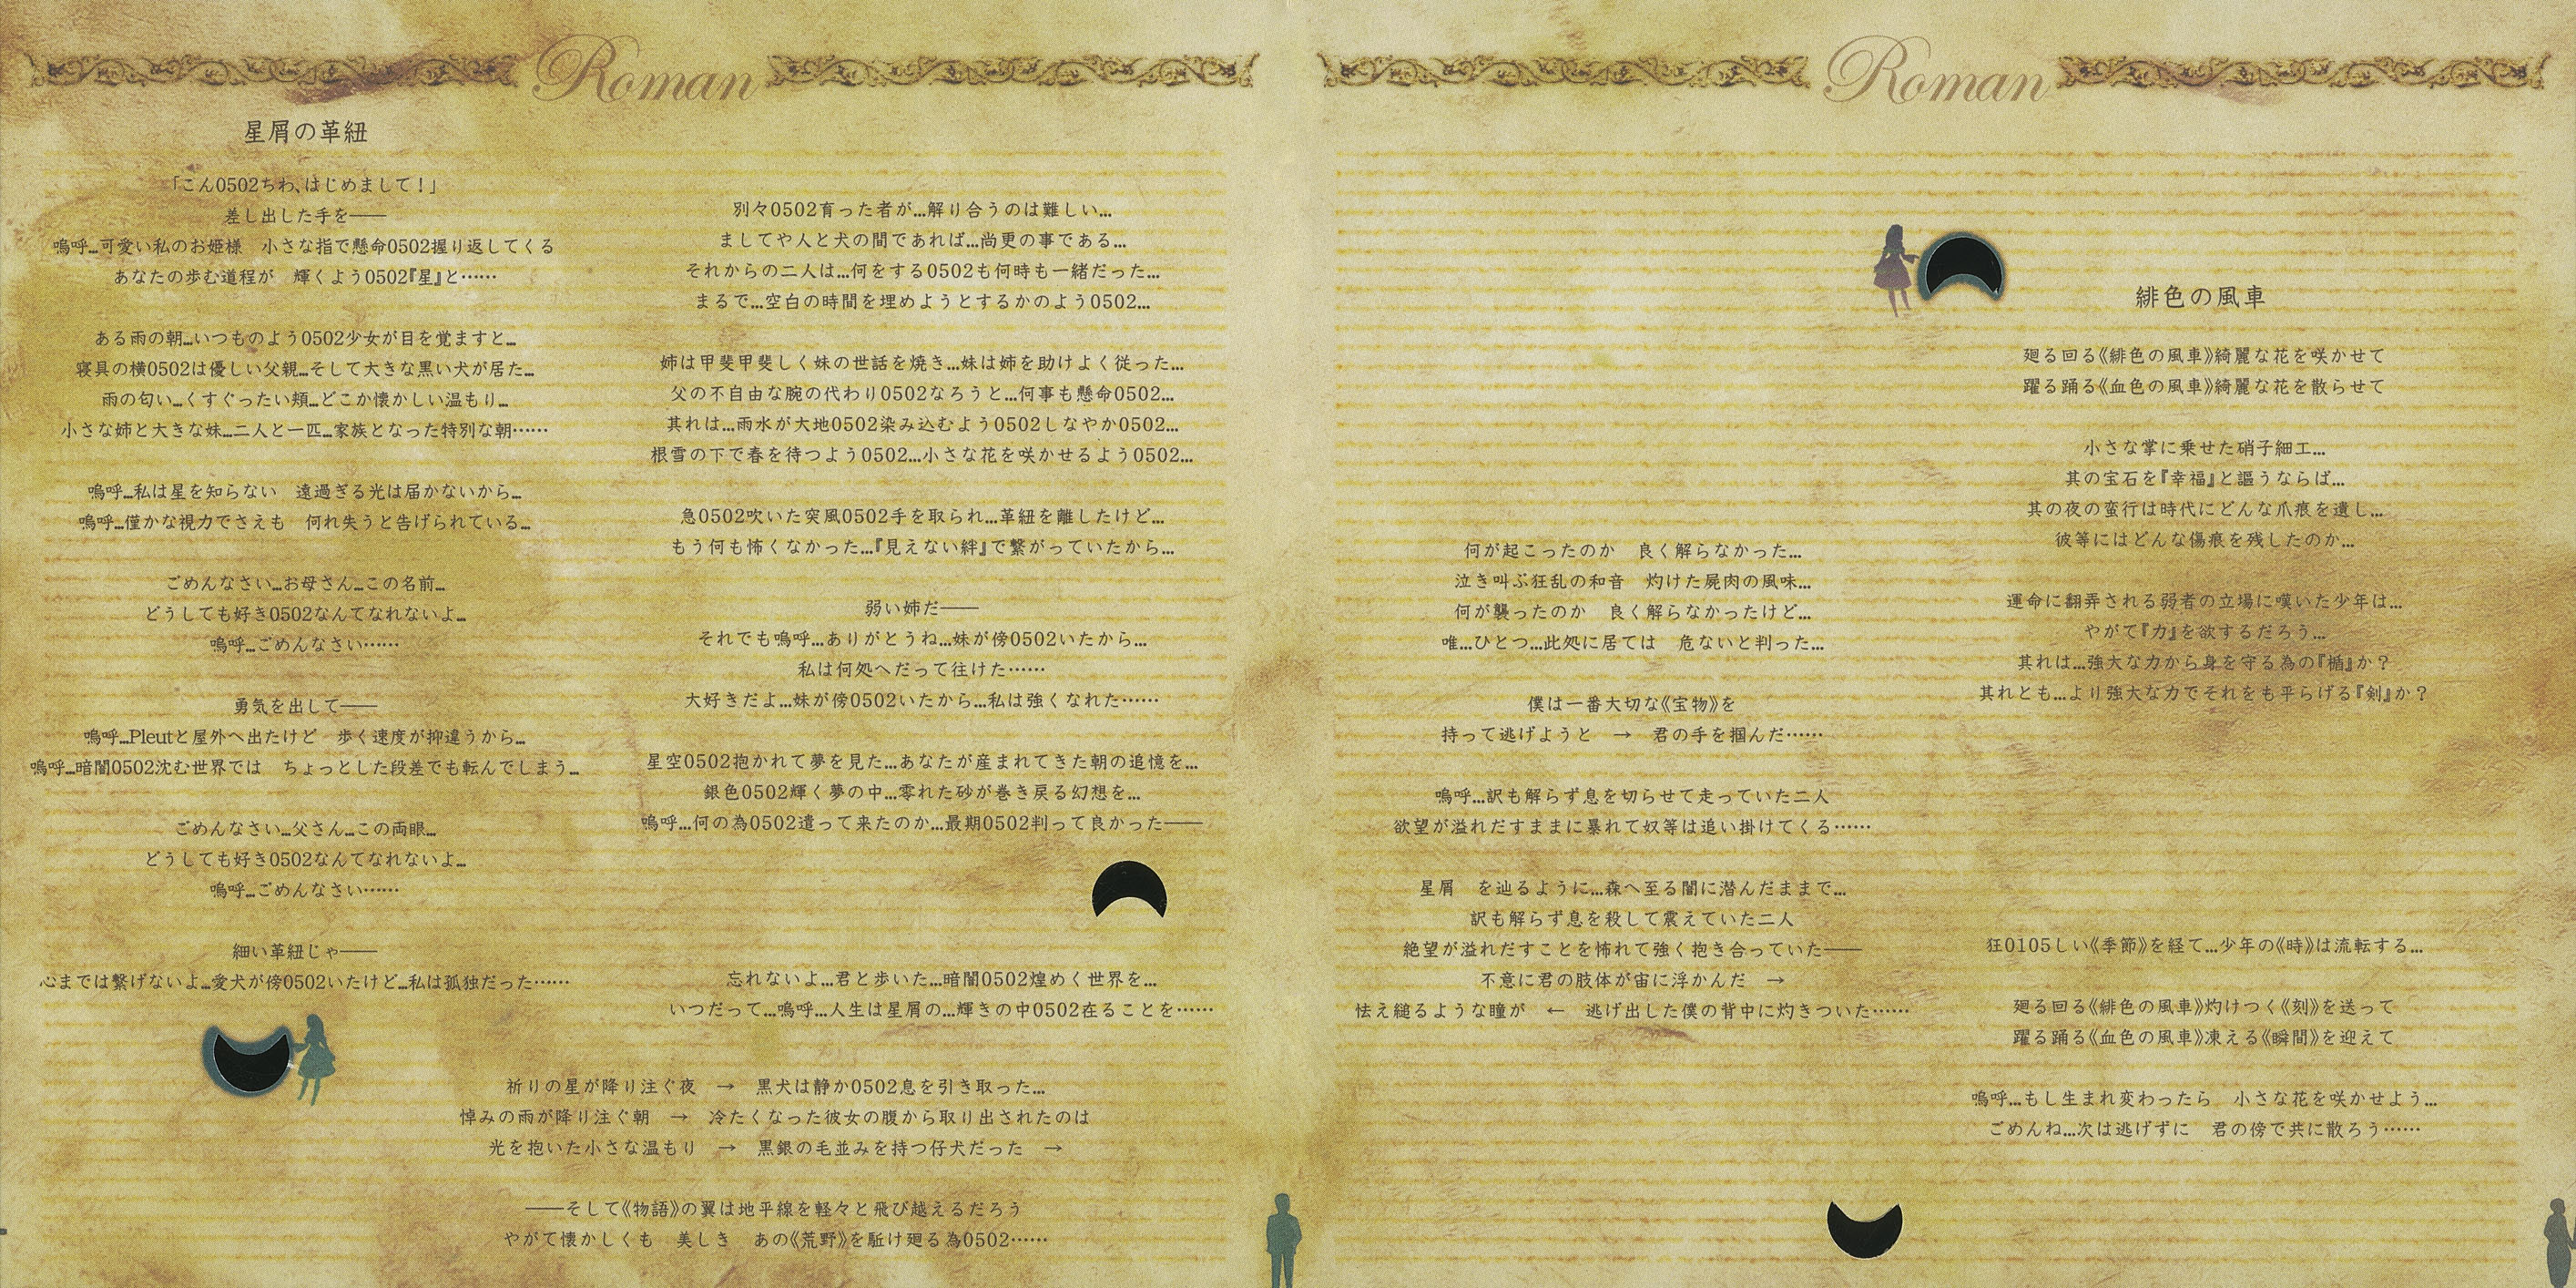 Roman
星屑の革紐
「こん0502ちわ、はじめまして！」
差し出した手を――
嗚呼…可愛い私のお姫様　小さな指で懸命0502握り返してくる
あなたの歩む道程が　輝くよう0502『星』と……
ある雨の朝…いつものよう0502少女が目を覚ますと…
寝具の横0502は優しい父親…そして大きな黒い犬が居た…
雨の匂い…くすぐったい頬…どこか懐かしい温もり…
小さな姉と大きな妹…二人と一匹…家族となった特別な朝……
嗚呼…私は星を知らない　遠過ぎる光は届かないから…
嗚呼…僅かな視力でさえも　何れ失うと告げられている…
ごめんなさい…お母さん…この名前…
どうしても好き0502なんてなれないよ…
嗚呼…ごめんなさい……
勇気を出して――
嗚呼…Pleutと屋外へ出たけど　歩く速度が抑違うから…
嗚呼…暗闇0502沈む世界では　ちょっとした段差でも転んでしまう…
ごめんなさい…父さん…この両眼…
どうしても好き0502なんてなれないよ…
嗚呼…ごめんなさい……
細い革紐じゃ――
心までは繋げないよ…愛犬が傍0502いたけど…私は孤独だった……
別々0502育った者が…解り合うのは難しい…
ましてや人と犬の間であれば…尚更の事である…
それからの二人は…何をする0502も何時も一緒だった…
まるで…空白の時間を埋めようとするかのよう0502…
姉は甲斐甲斐しく妹の世話を焼き…妹は姉を助けよく従った…
父の不自由な腕の代わり0502なろうと…何事も懸命0502…
其れは…雨水が大地0502染み込むよう0502しなやか0502…
根雪の下で春を待つよう0502…小さな花を咲かせるよう0502…
急0502吹いた突風0502手を取られ…革紐を離したけど…
もう何も怖くなかった…『見えない絆』で繋がっていたから…
弱い姉だ――
それでも嗚呼…ありがとうね…妹が傍0502いたから…
私は何処へだって往けた……
大好きだよ…妹が傍0502いたから…私は強くなれた……
星空0502抱かれて夢を見た…あなたが産まれてきた朝の追憶を…
銀色0502輝く夢の中…零れた砂が巻き戻る幻想を…
嗚呼…何の為0502遣って来たのか…最期0502判って良かった――
忘れないよ…君と歩いた…暗闇0502煌めく世界を…
いつだって…嗚呼…人生は星屑の…輝きの中0502在ることを……
祈りの星が降り注ぐ夜　→　黒犬は静か0502息を引き取った…
悼みの雨が降り注ぐ朝　→　冷たくなった彼女の腹から取り出されたのは
光を抱いた小さな温もり　→　黒銀の毛並みを持つ仔犬だった　→
――そして《物語》の翼は地平線を軽々と飛び越えるだろう
やがて懐かしくも　美しき　あの《荒野》を駈け廻る為0502……
Roman
何が起こったのか　良く解らなかった…
泣き叫ぶ狂乱の和音　灼けた屍肉の風味…
何が襲ったのか　良く解らなかったけど…
唯…ひとつ…此処に居ては　危ないと判った…
僕は一番大切な《宝物》を
持って逃げようと　→　君の手を掴んだ……
嗚呼…訳も解らず息を切らせて走っていた二人
欲望が溢れだすままに暴れて奴等は追い掛けてくる……
星屑　を辿るように…森へ至る闇に潜んだままで…
訳も解らず息を殺して震えていた二人
絶望が溢れだすことを怖れて強く抱き合っていた――
不意に君の肢体が宙に浮かんだ　→
怯え縋るような瞳が　←　逃げ出した僕の背中に灼きついた……
緋色の風車
廻る回る《緋色の風車》綺麗な花を咲かせて
躍る踊る《血色の風車》綺麗な花を散らせて
小さな掌に乗せた硝子細工…
其の宝石を『幸福』と謳うならば…
其の夜の蛮行は時代にどんな爪痕を遺し…
彼等にはどんな傷痕を残したのか…
運命に翻弄される弱者の立場に嘆いた少年は…
やがて『力』を欲するだろう…
其れは…強大な力から身を守る為の『楯』か？
其れとも…より強大な力でそれをも平らげる『剣』か？
狂0105しい《季節》を経て…少年の《時》は流転する…
廻る回る《緋色の風車》灼けつく《刻》を送って
躍る踊る《血色の風車》凍える《瞬間》を迎えて
嗚呼…もし生まれ変わったら　小さな花を咲かせよう…
ごめんね…次は逃げずに　君の傍で共に散ろう……